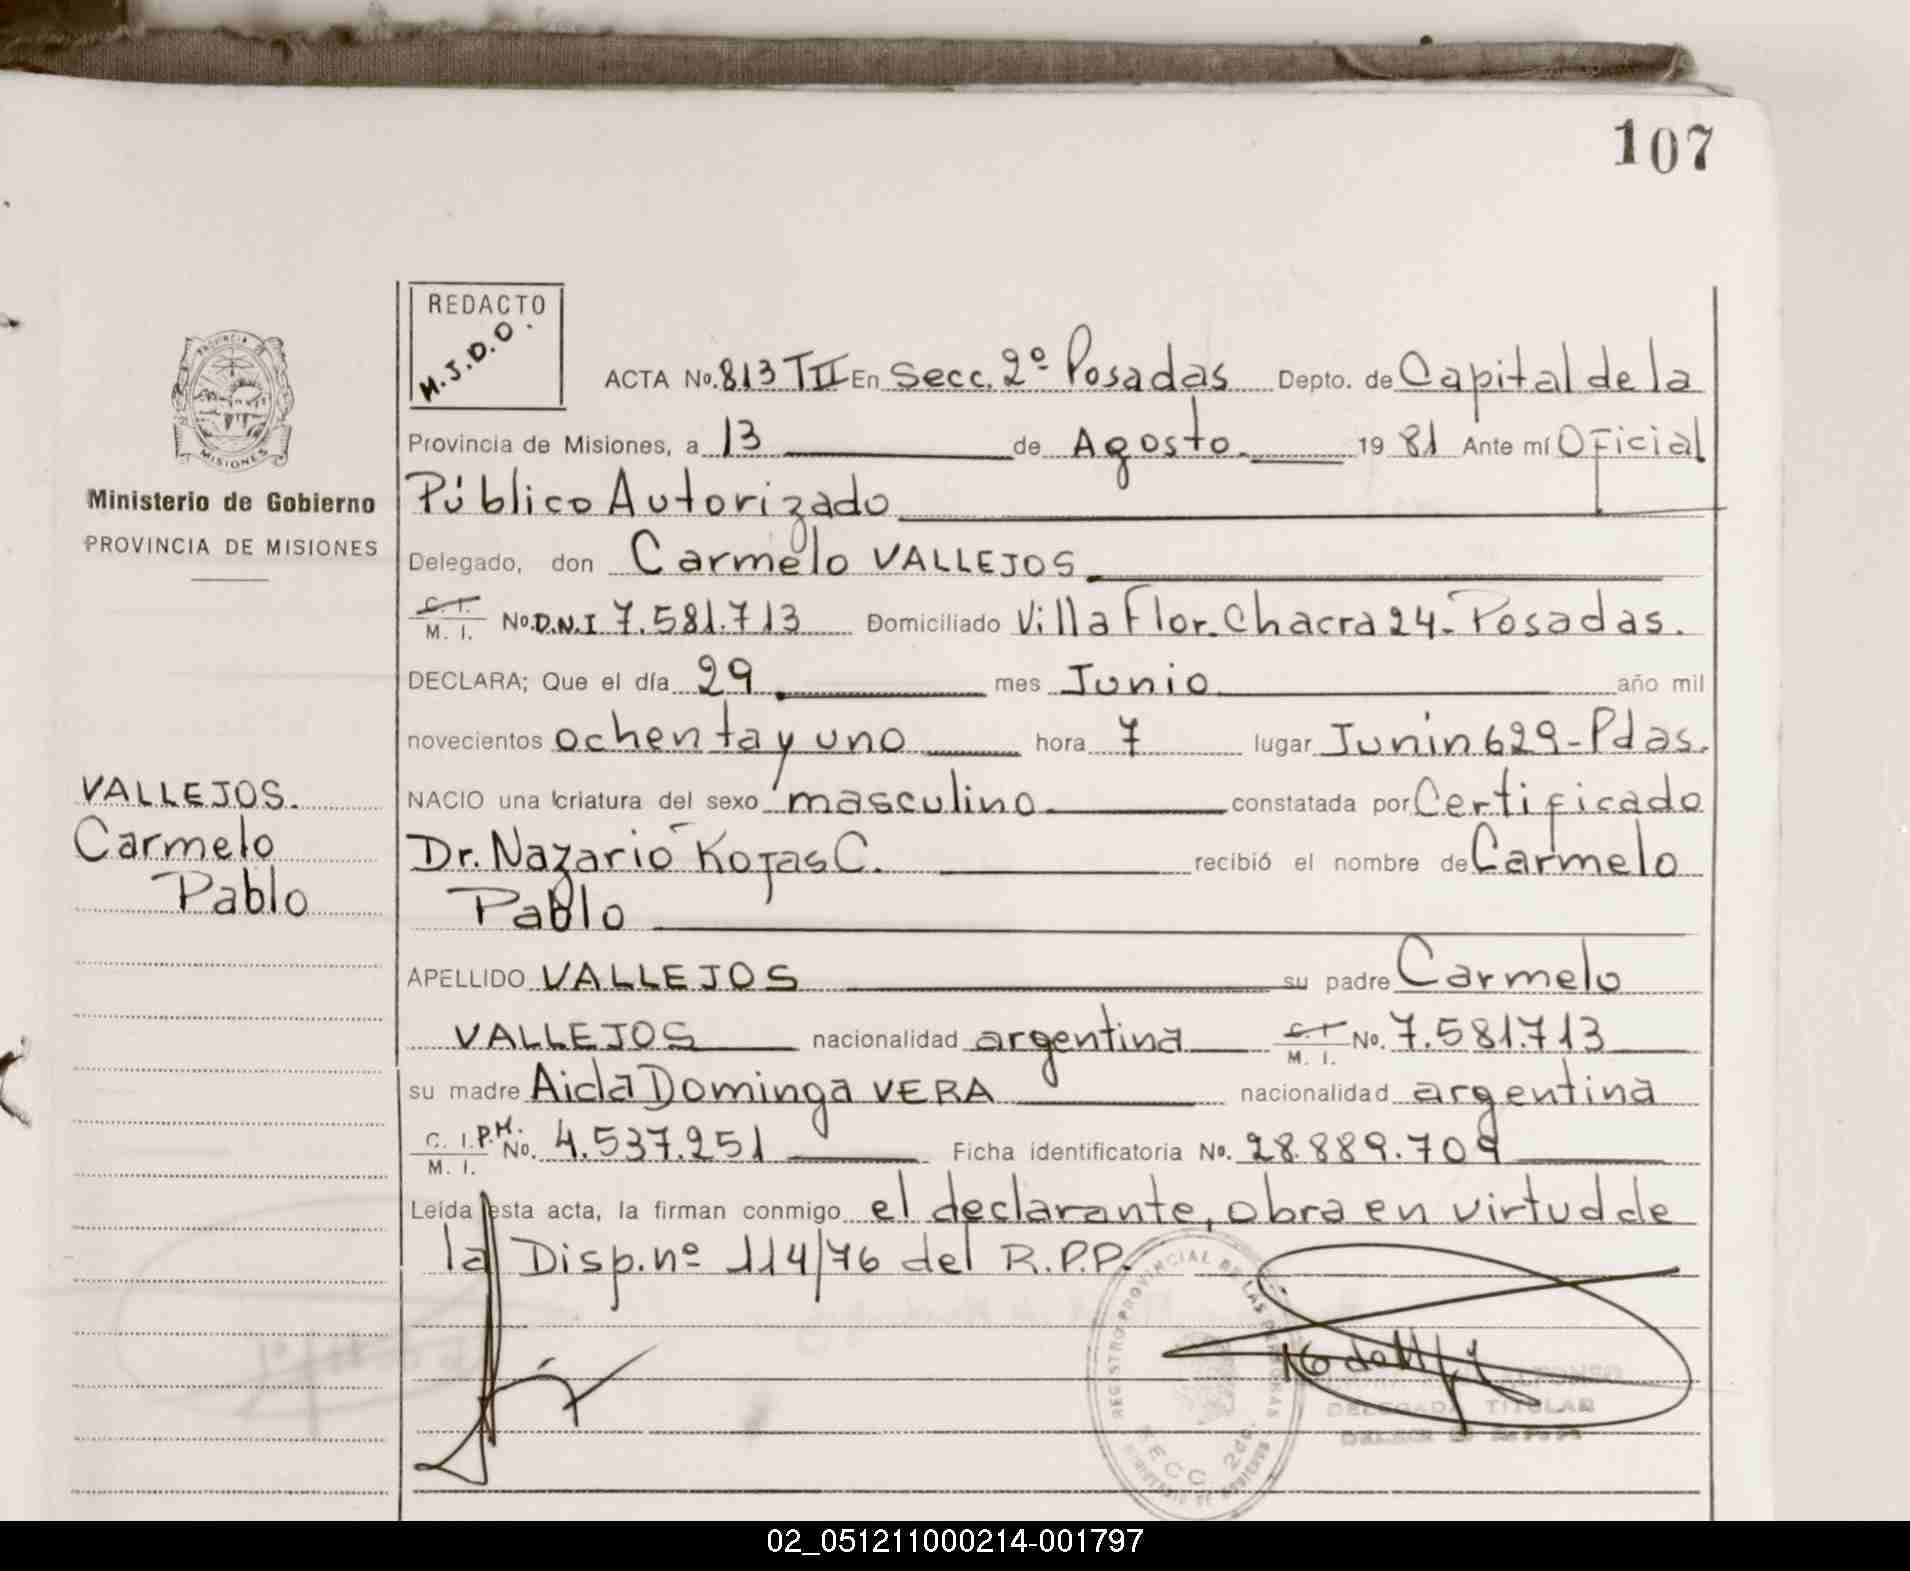 107
REDACTO
M.J.D.O.
ACTA No. 813 TII En Secc. 2º Posadas Depto. de Capital de la
Provincia de Misiones, a 13 de Agosto. 19 81 Ante mí Oficial
Público Autorizado
Delegado, don Carmelo VALLEJOS
C. I. M. I. No. D.N.I 7.581.713 Domiciliado Villa Flor. Chacra 24 - Posadas.
DECLARA; Que el día 29 mes Junio año mil
novecientos ochenta y uno hora 7 lugar Junin 629 - Pdas.
NACIO una criatura del sexo masculino constatada por Certificado
Dr. Nazario Rojas C. recibió el nombre de Carmelo
Pablo
APELLIDO VALLEJOS su padre Carmelo
VALLEJOS nacionalidad argentina C. I. M. I. No. 7.581.713
su madre Aida Dominga VERA nacionalidad argentina
C. I. P.M. M. I. No. 4.537.251 Ficha identificatoria No. 28.889.709
Leída esta acta, la firman conmigo el declarante, obra en virtud de
la Disp. nº 114/76 del R.P.P.
PROVINCIA DE MISIONES
Ministerio de Gobierno
PROVINCIA DE MISIONES
VALLEJOS.
Carmelo
Pablo
REGISTRO PROVINCIAL DE LAS PERSONAS
SECC 2da.
DELEGADA TITULAR
02_051211000214-001797